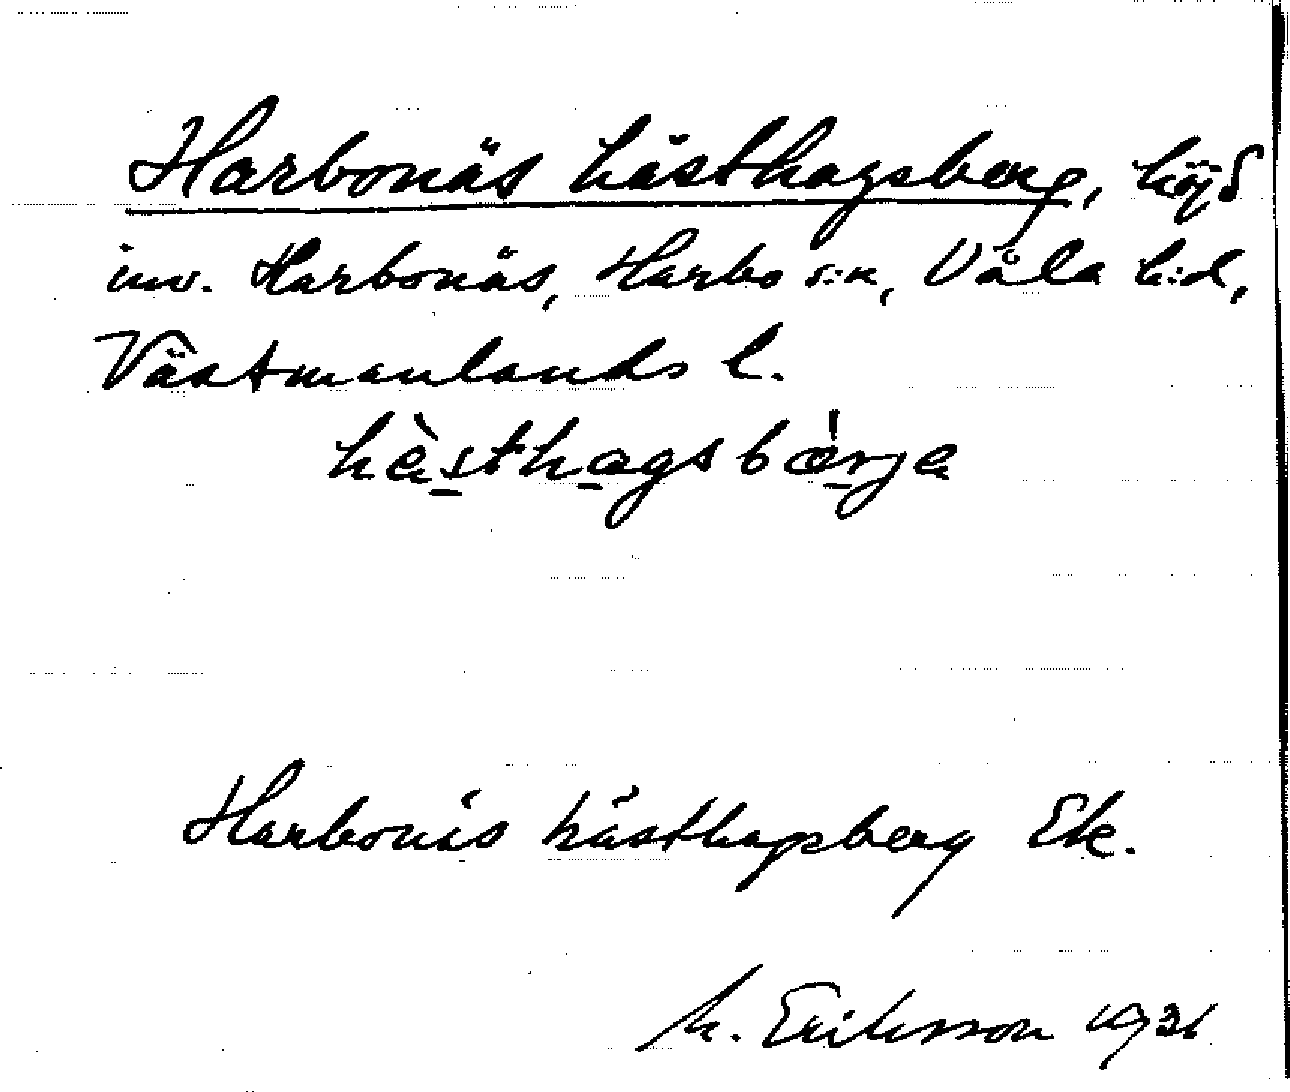 Harbonäs hästhagsberg, höjd
inv. Harbonäs, Harbo s:n, Våla h:d,
Västmanlands l.
hὲsthagsbærja
Harbonäs hästhagsberg Ek.
M. Eriksson 1931